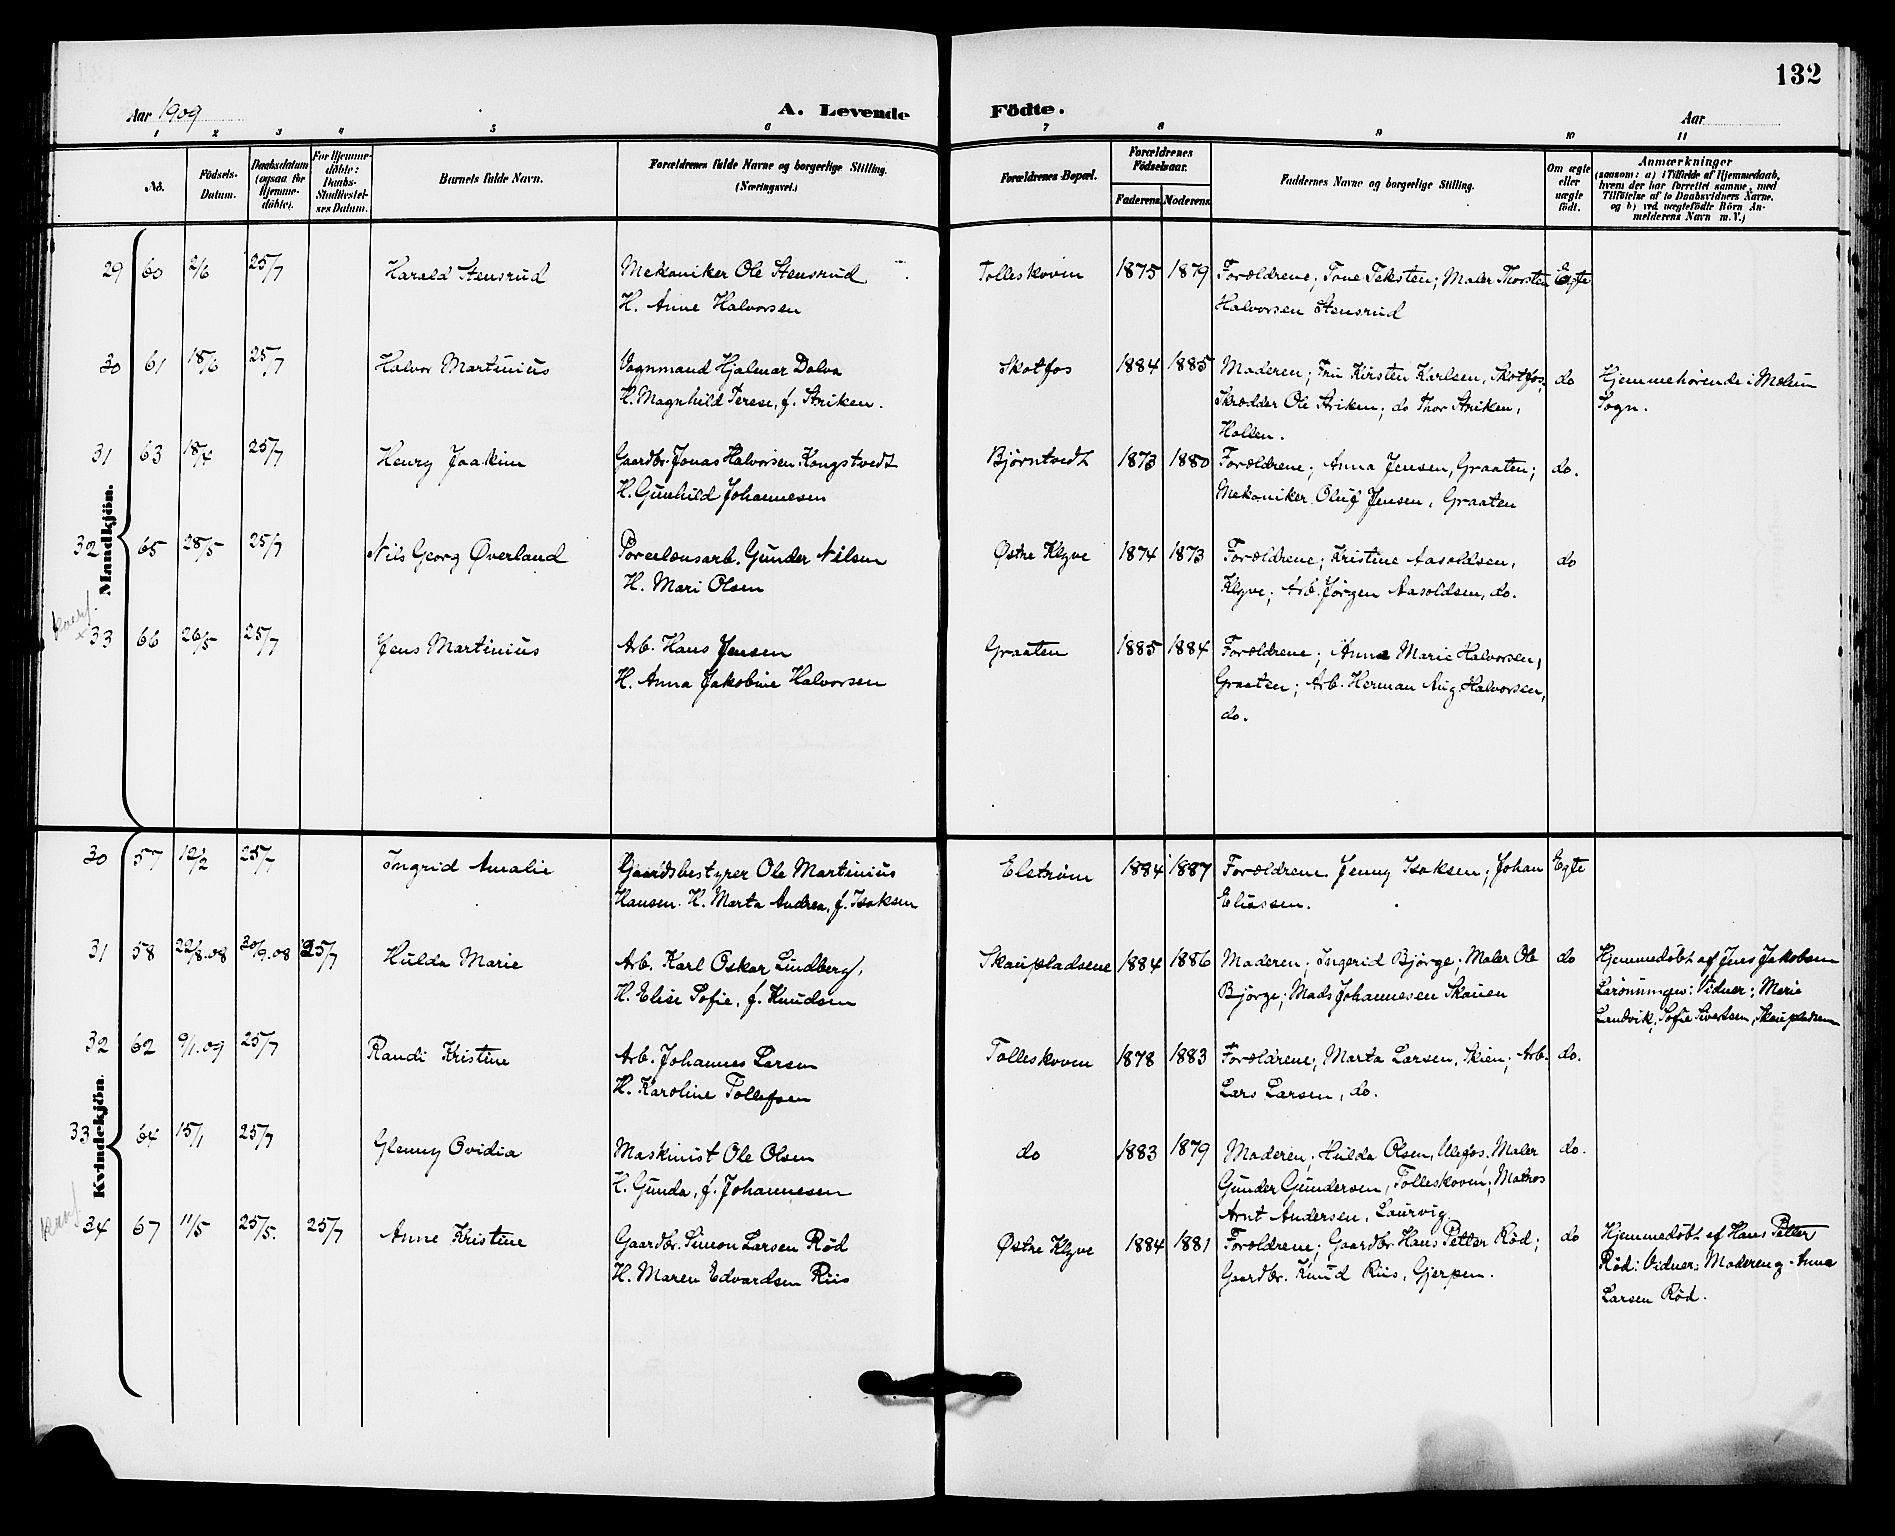 132
Aar 1909
A. Levende Födte.
Aar
1 2 3 4 5 6 7 8 9 10 11
No.
Födsels-Datum.
Daabsdatum (ogsaa for Hjemme-döbte).
For Hjemme-döbte: Daabs-Stadfæstel-ses Datum.
Barnets fulde Navn.
Forældrenes fulde Navne og borgerlige Stilling. (Næringsvei.)
Forældrenes Bopæl.
Forældrenes Födselsaar.
Faderens. Moderens.
Faddernes Navne og borgerlige Stilling.
Om ægte eller uægte födt.
Anmærkninger
(saasom: a) i Tilfælde af Hjemmedaab, hvem der har forrettet samme, med Tilföielse af to Daabsvidners Navne. og b) ved uægtefödte Börn An-melderens Navn m. V.)
Mandkjön.
29 60 2/6 25/7 Harald Stensrud Mekaniker Ole Stensrud Tolleskoven 1875 1879 Forældrene; Tone Teksten; Maler Thorsten Egte
H. Anne Halvorsen Halvorsen Stensrud
30 61 18/6 25/7 Halvor Martinius Vognmand Hjalmar Dalva Skotfos 1884 1885 Moderen; Fru Kirsten Karlsen, Skotfos; do Hjemmehørende i Melum
H. Magnhild Terese, f. Striken. Skrædder Ole Striken; do Thor Striken, Sogn.
Hollen.
31 63 18/4 25/7 Henry Joakim Gaardbr. Jonas Halvorsen Kongstvedt Bjørntvedt 1873 1880 Forældrene; Anna Jensen, Graaten; do.
H. Gunhild Johannesen Mekaniker Oluf Jensen, Graaten
32 65 28/5 25/7 Nils Georg Øverland Porcelænsarb. Gunder Nilsen Østre Klyve 1874 1873 Forældrene; Kristine Aasoldsen, do
H. Mari Olsen Klyve; Arb. Jørgen Aasoldsen, do.
33 66 26/5 25/7 Jens Martinius Arb. Hans Jensen Graaten 1885 1884 Forældrene; Anna Marie Halvorsen,
H. Anna Jakobine Halvorsen Graaten; Arb. Herman Aug. Halvorsen,
do.
Kvindekjön.
30 57 12/2 25/7 Ingrid Amalie Gaardsbestyrer Ole Martinius Elstrøm 1884 1887 Forældrene Jenny Isaksen; Johan Egte
Hansen. H. Marta Andrea, f. Isaksen Eliassen.
31 58 22/8.08 30/9.08 25/7 Hulda Marie Arb. Karl Oskar Lindberg, Skaupladsene 1884 1886 Moderen; Ingerid Bjørge; Maler Ole do Hjemmedøbt af Jens Jakobsen
H. Elise Sofie, f. Knudsen Bjørge; Mads Johannesen Skauen Vidner; Marie
Landvik, Sofie Sivertsen, Skaupladsene
32 62 9/1.09 25/7 Randi Kristine Arb. Johannes Larsen Tolleskoven 1878 1883 Forældrene; Marta Larsen, Skien; Arb. do.
H. Karoline Tollefsen Lars Larsen, do.
33 64 15/1 25/7 Glenny Ovidia Maskinist Ole Olsen do 1883 1879 Moderen; Hulda Olsen, Ulefos. Maler do.
H. Gunda, f. Johannesen Gunder Gundersen, Tolleskoven; Matros
Arnt Andersen, Laurvig
34 67 11/5 25/5. 25/7 Anne Kristine Gaardbr. Simon Larsen Rød Østre Klyve 1884 1881 Forældrene; Gaardbr. Hans Petter Rød; do Hjemmedøbt af Hans Petter
H. Maren Edvardsen Riis Gaardbr. Knud Riis, Gjerpen. Rød: Vidner: Moderen og Anna
Larsen Rød.